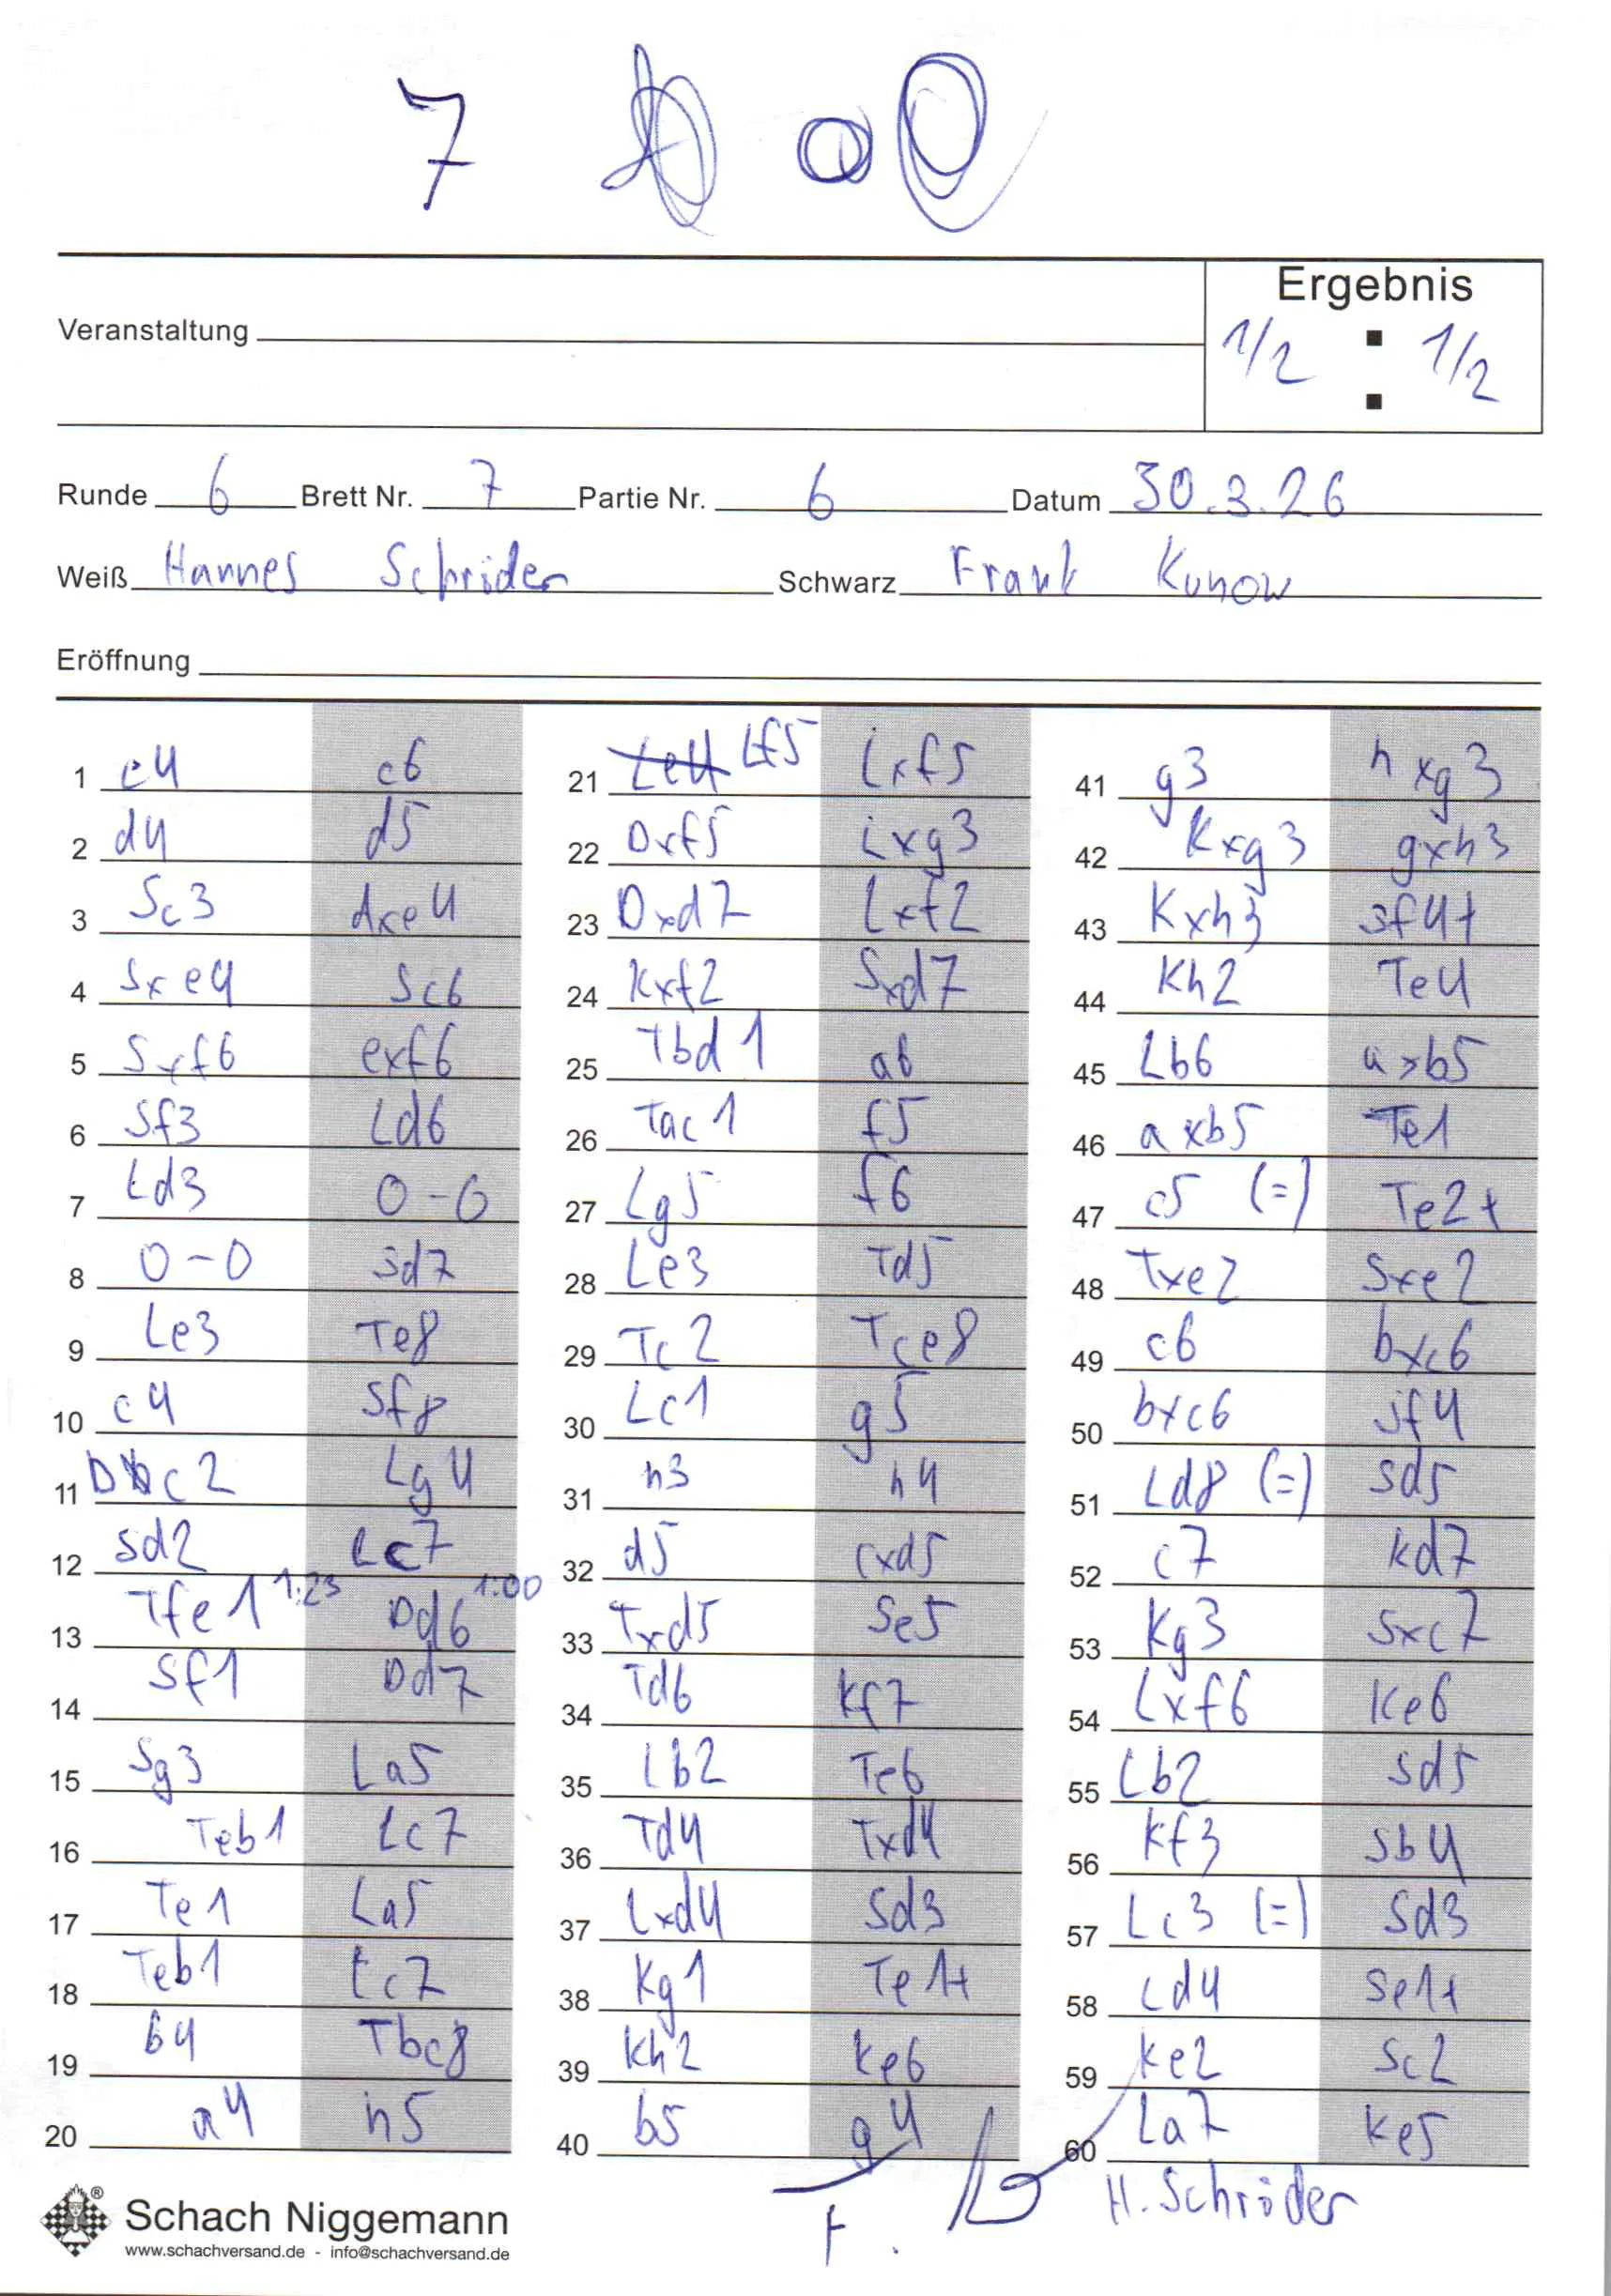 7
Ergebnis
Veranstaltung
1/2 : 1/2
Runde 6 Brett Nr. 7 Partie Nr. 6 Datum 30.3.26
Weiß Hannes Schröder Schwarz Frank Kunow
Eröffnung
1 e4 c6
2 d4 d5
3 Sc3 dxe4
4 Sxe4 Sc6
5 Sxf6 exf6
6 Sf3 Ld6
7 Ld3 0-0
8 0-0 Sd7
9 Le3 Te8
10 c4 Sf8
11 Dc2 Lg4
12 Sd2 Lc7
13 Tfe1 1:23 Dd6 1:00
14 Sf1 Dd7
15 Sg3 La5
16 Teb1 Lc7
17 Te1 La5
18 Teb1 Lc7
19 b4 Tbc8
20 a4 h5
21 Le4 Lf5 Lxf5
22 Dxf5 Lxg3
23 Dxd7 Lxf2
24 Kxf2 Sxd7
25 Tbd1 a6
26 Tac1 f5
27 Lg5 f6
28 Le3 Td5
29 Tc2 Tce8
30 Lc1 g5
31 h3 h4
32 d5 cxd5
33 Txd5 Se5
34 Td6 Kf7
35 Lb2 Te6
36 Td4 Txd4
37 Lxd4 Sd3
38 Kg1 Te1+
39 Kh2 Ke6
40 b5 g4
41 g3 hxg3
42 Kxg3 gxh3
43 Kxh3 Sf4+
44 Kh2 Te4
45 Lb6 axb5
46 axb5 Te1
47 c5 (=) Te2+
48 Txe2 Sxe2
49 c6 bxc6
50 bxc6 Sf4
51 Ld8 (=) Sd5
52 c7 Kd7
53 Kg3 Sxc7
54 Lxf6 Ke6
55 Lb2 Sd5
56 Kf3 Sb4
57 Lc3 (=) Sd3
58 Ld4 Se1+
59 Ke2 Sc2
60 La7 Ke5
H. Schröder
F.
Schach Niggemann
www.schachversand.de - info@schachversand.de